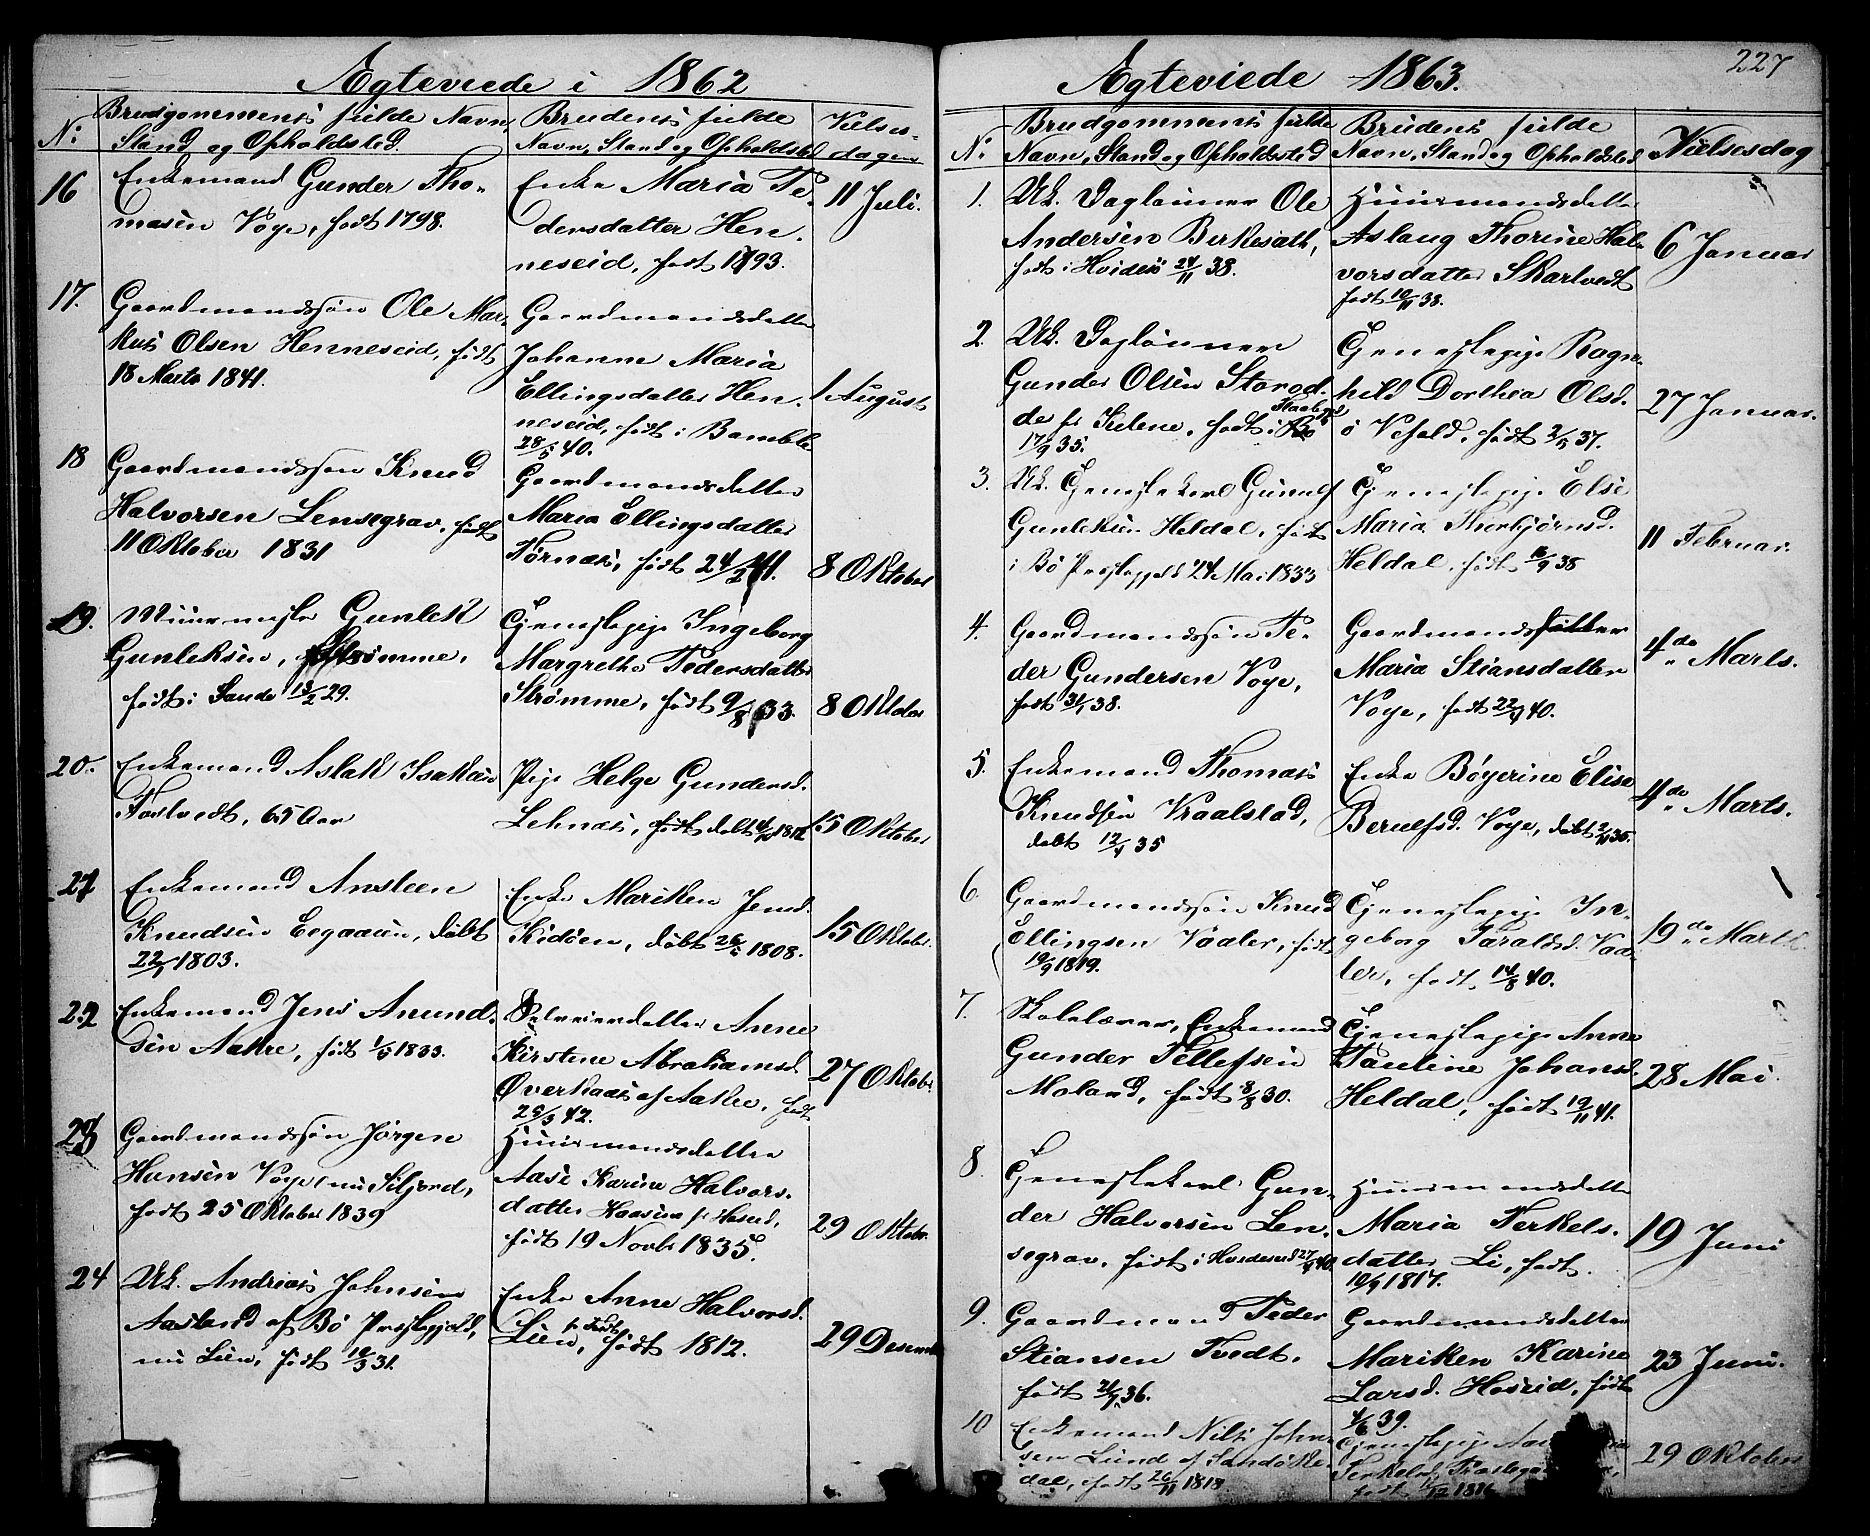 Ægteviede i 1862
N:
Brudgommens fulde Navn,
Stand og Opholdsted.
Brudens fulde
Navn, Stand og Opholdsted
Vielses-
dagen
16
Enkemand Gunder Tho-
masen Voje, født 1798.
Enke Maria Pe-
dersdatter Hen-
neseid, født 1793.
11 Juli.
17.
Gaardmandssøn Ole Mar-
kus Olsen Henneseid, født
18 Marts 1841.
Gaardmandsdatter
Johanne Maria
Ellingsdatter Hen-
neseid, født i Bamble
28/5 40.
1 August
18
Gaardmandssøn Knud
Halvorsen Lensegrav, født
11 Oktober 1831
Gaardmandsdatter
Maria Ellingsdatter
Tørnæs, født 24/2 41.
8 Oktober
19.
Muurmester Gunlek
Gunleksen, Strømme,
født i Sande 13/2 29.
Tjenestepige Ingeborg
Margrethe Pedersdatter
Strømme, født 9/8 33.
8 Oktober
20.
Enkemand Aslak Isaksen
Tostvedt, 65 Aar
Pige Helge Gundersd.
Lehnæs, døbt 1812
15 Oktober
21
Enkemand Ansteen
Knudsen Eegaaen, døbt
22/1 1803.
Enke Mariken Jensd.
Kidøen, døbt 26/ 1808.
15 Oktober.
22
Enkemand Jens Anund-
sen Aakre, født 1/5 1833.
Selveierdatter Anne
Kirstene Abrahamsd.
Øverkaas af Aakre, født
25/3 42.
27 Oktober.
23
Gaardmandssøn Jørgen
Hansen Voje, nu Siljord,
født 25 Oktober 1839
Huusmandsdatter
Aase Karine Halvors-
datter Haasun fr Hoseid,
født 19 Novbr 1835.
29 Oktober.
24
Uk. Andreas Johnsen
Aasland af Bø Præstegjeld,
nu Lien, født 12/3 31.
Enke Anne Halvorsd.
Lien, født 1812.
29 Desember
227
Ægteviede 1863.
N:
Brudgommens fulde
Navn, Stand og Opholdsted
Brudens fulde
Navn, Stand og Opholdsted
Vielsesdag
1.
Uk. Daglønner Ole
Andersen Birkesath,
født i Hvidesø 24/11 38.
Huusmandsdatter
Aslaug Thorine Hal-
vorsdatter Skartvedt
født 10/11 38.
6 Januar
2.
Uk. Dagløner
Gunder Olsen Storod-
de fr Kilene, født i
17/9 35.
Tjenestepige Ragn-
hild Dorthea Olsd.
ø Vefald, født 2/5 37.
27 Januar.
3.
Uk. Tjenestekarl Gunulf
Gunleksen Heldal, født
i Bø Præstegjeld 24 Mai 1833
Tjenestepige Else
Maria Thorbjørnsd.
Heldal, født 16/9 38
11 Februar.
4.
Gaardmandssøn Pe-
der Gundersen Voje,
født 31/1 38.
Gaardmandsdatter
Maria Stiansdatter
Voje, født 22/4 40.
4de Marts.
5.
Enkemand Thomas
Knudsen Vraalstad,
døbt 12/4 35
Enke Bøyerine Elise
Berulfsd. Voje, døbt 2/11 35.
4de Marts.
6.
Gaardmandssøn Knud
Ellingsen Vaaler, født
19/9 1819.
Tjenestepige In-
geborg Taraldsd. Vaa-
ler, født 14/8 40.
19de Marts
7.
Skolelærer, Enkemand
Gunder Tellefsen
Moland, født 8/8 30.
Tjenestepige Anne
Pauline Johansd.
Heldal, født 19/11 41.
28 Mai.
8.
Tjenestekarl Gun-
der Halvorsen Len-
segrav, født i Hvideseid 27/4 40.
Huusmandsdatter
Maria Terkels-
datter Li, født
10/9 1817.
19 Juni
9.
Gaardmand Peder
Stiansen Tvedt,
født 21/9 36.
Gaardmandsdatter
Mariken Karine
Larsd. Hoseid, født
4/6 39.
23 Juni.
10
Enkemand Nils John-
sen Lund af Sandøke-
dal, født 26/11 1818.
Tjenestepige
Terkelsd.
født 11/12 1816
29 Oktober